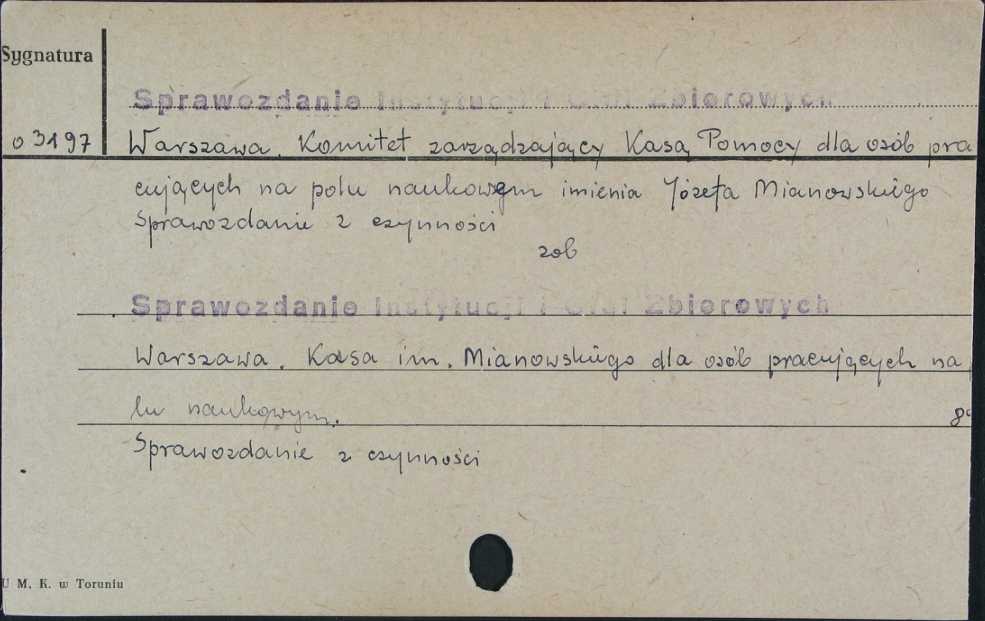 Sygnatura
Sprawozdanie Instytucji i Ciał Zbiorowych
o 3197 Warszawa. Komitet zarządzający Kasą Pomocy dla osób pra
cujących na polu naukowem imienia Józefa Mianowskiego
Sprawozdanie z czynności
zob
Sprawozdanie Instytucji i Ciał Zbiorowych
Warszawa. Kasa im. Mianowskiego dla osób pracujących na
lu naukowym.
8°
Sprawozdanie z czynności
U M. K. w Toruniu